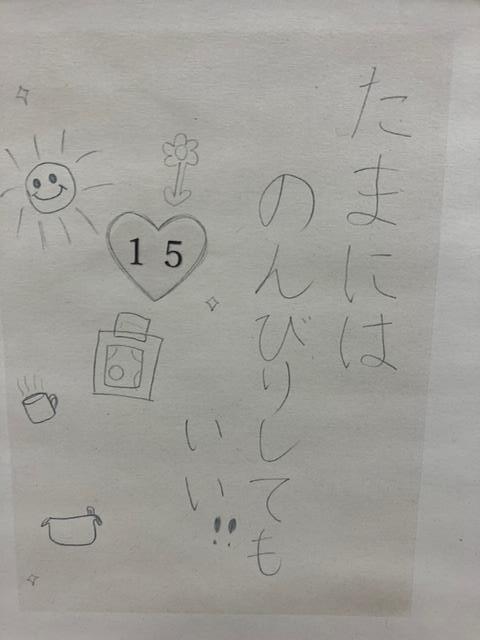 たまには
のんびりしても
いい!!
15